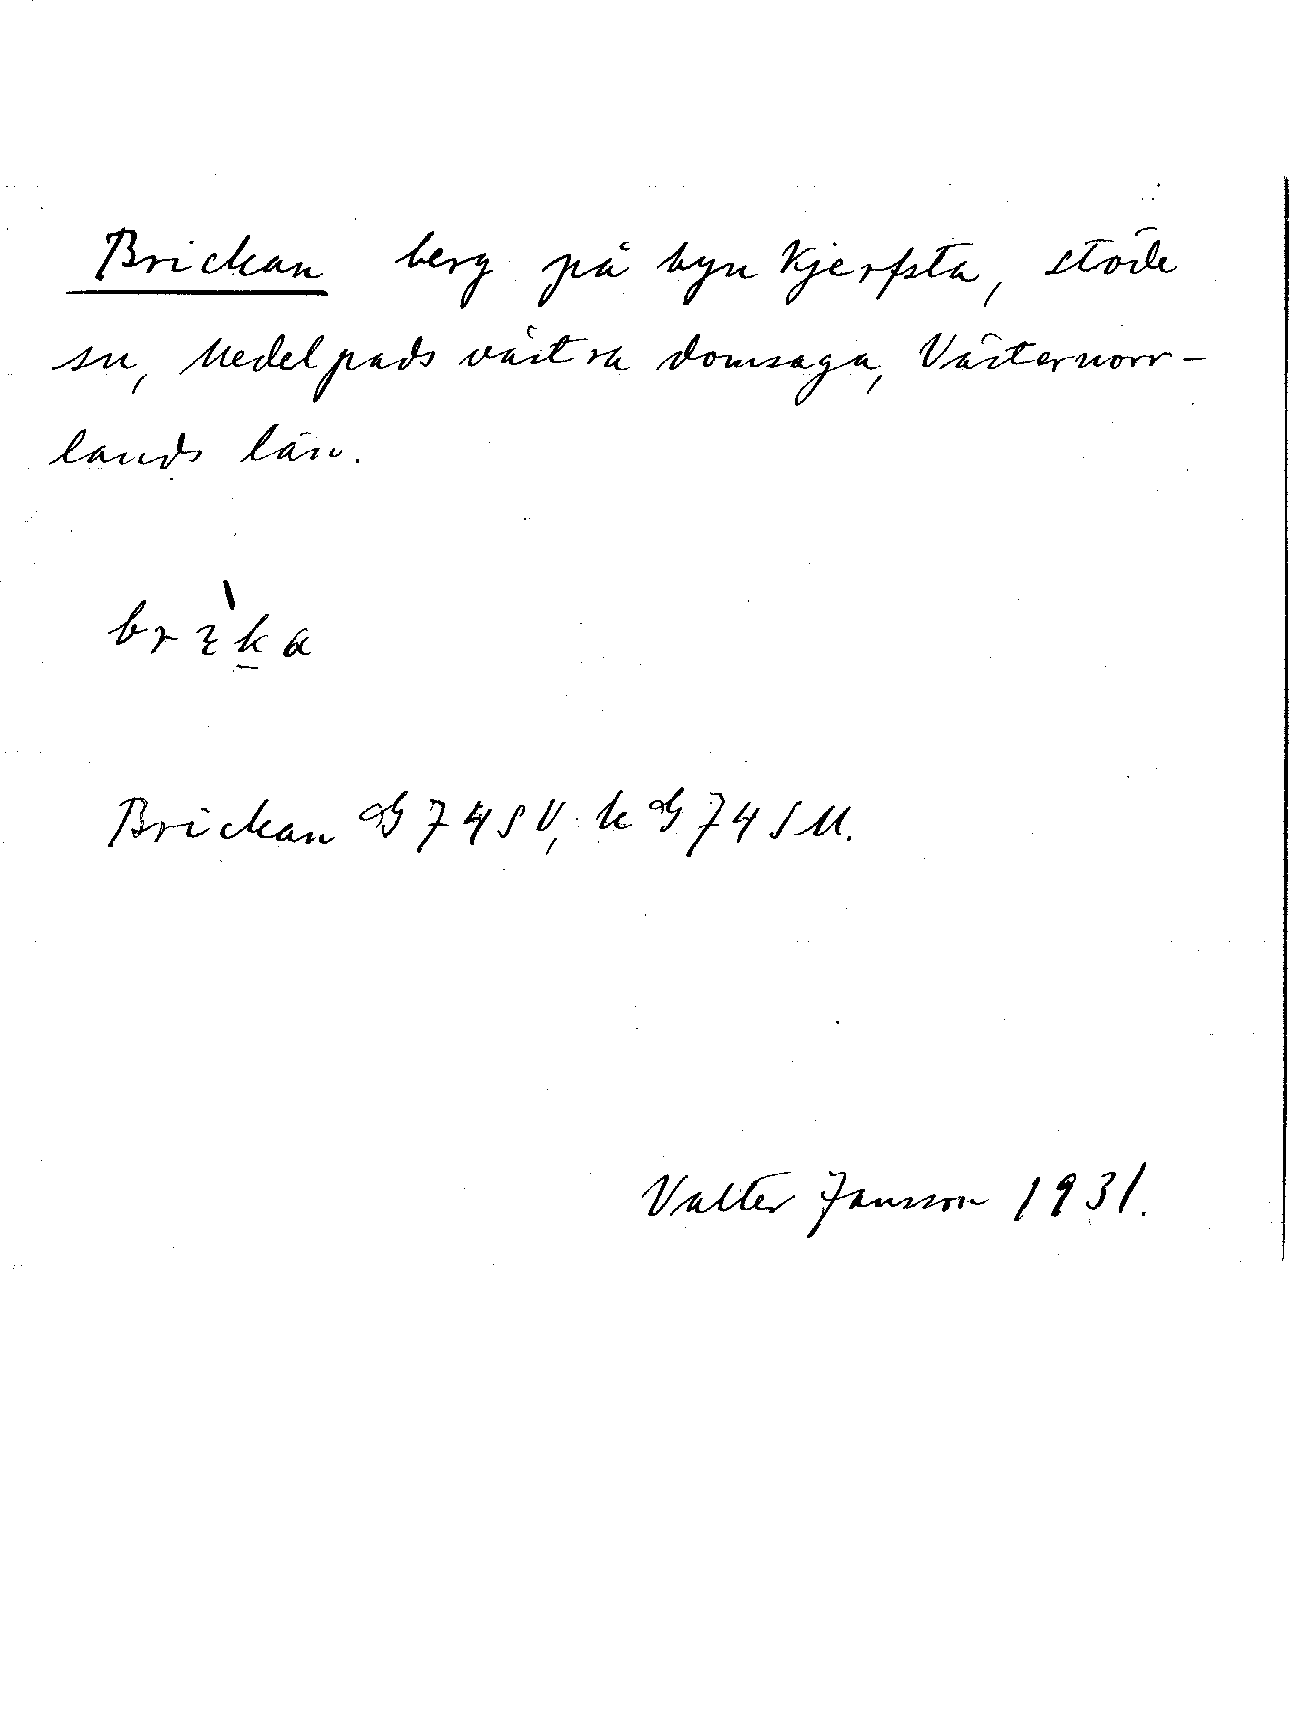 Brickan berg på byn Kjerfsta, Stöde
sn, Medelpads västra domsaga, Västernorr-
lands län.
brɩ̀k̲a
Brickan G 74 S V, k G 74 S M.
Valter Jansson 1931.